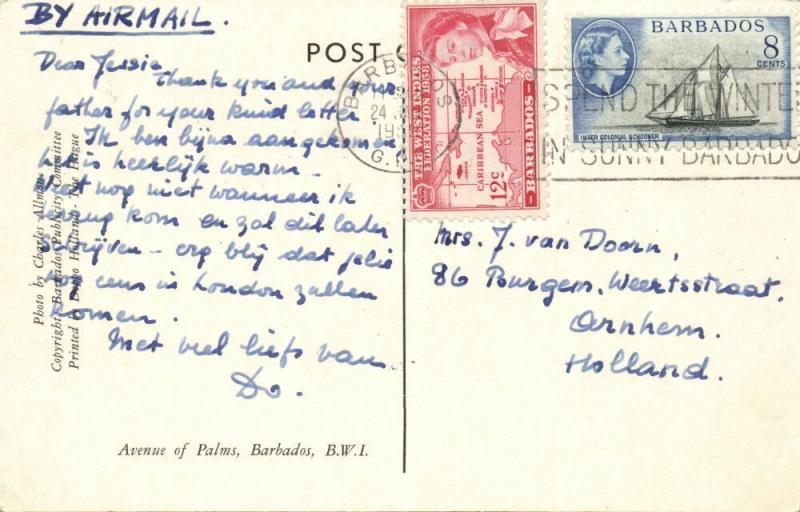 BY AIRMAIL.
POST
Dear Jessie
Thank you and your
father for your kind letter
Ik ben bijna aangekomen
is heerlijk warm.
nog niet wanneer ik
terug kom en zal dit later
schrijven - erg blij dat jelie
eens in London zullen
komen.
Met veel liefs van
Do.
Photo by Charles Allmon
Copyright Barbados Publicity Committee
Printed by Holland - The Hague
Avenue of Palms, Barbados, B.W.I.
BARBADOS
24
19
G.
THE WEST INDIES
FEDERATION 1958
CARIBBEAN SEA
12c
BARBADOS
BARBADOS
8
CENTS
INTER COLONIAL SCHOONER
SPEND THE WINTE
IN SUNNY BARBADO
Mrs. J. van Doorn,
86 Burgem. Weertsstraat,
Arnhem.
Holland.